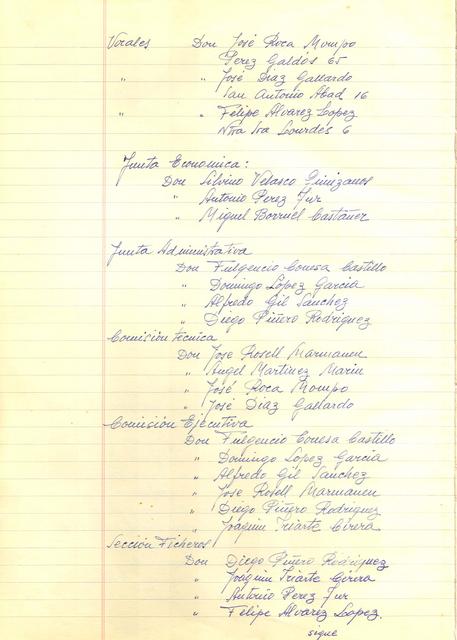 Vocales Don José Roca Mompo
Perez Galdós 65
" " José Diaz Gallardo
San Antonio Abad 16
" " Felipe Alvarez Lopez
Ntra Sra Lourdes 6
Junta Economica:
Don Silvino Velasco
" Antonio Perez Jur
" Miguel Borruel Castañer
Junta Administrativa
Don Fulgencio Conesa Castillo
" Domingo López Garcia
" Alfredo Gil Sanchez
" Diego Piñero Rodriguez
Comisión técnica
Don Jose Rosell Marmaneu
" Angel Martinez Marin
" José Roca Mompo
" José Diaz Gallardo
Comisión Ejecutiva
Don Fulgencio Conesa Castillo
" Domingo Lopez Garcia
" Alfredo Gil Sanchez
" Jose Rosell Marmaneu
" Diego Piñero Rodriguez
" Joaquin Iriarte Cirera
Sección Ficheros
Don Diego Piñero Rodriguez
" Joaquin Iriarte Cirera
" Antonio Perez Jur
" Felipe Alvarez Lopez.
sigue